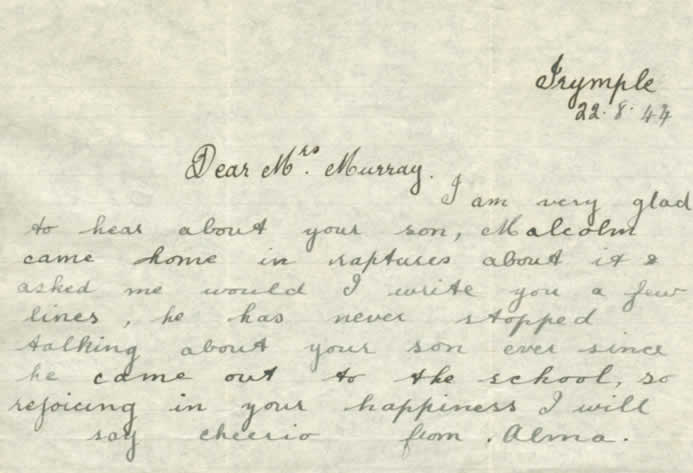 Irymple
22.8.44
Dear Mrs. Murray.
I am very glad
to hear about your son, Malcolm
came home in raptures about it &
asked me would I write you a few
lines, he has never stopped
talking about your son ever since
he came out to the school, so
rejoicing in your happiness I will
say cheerio from. Alma.